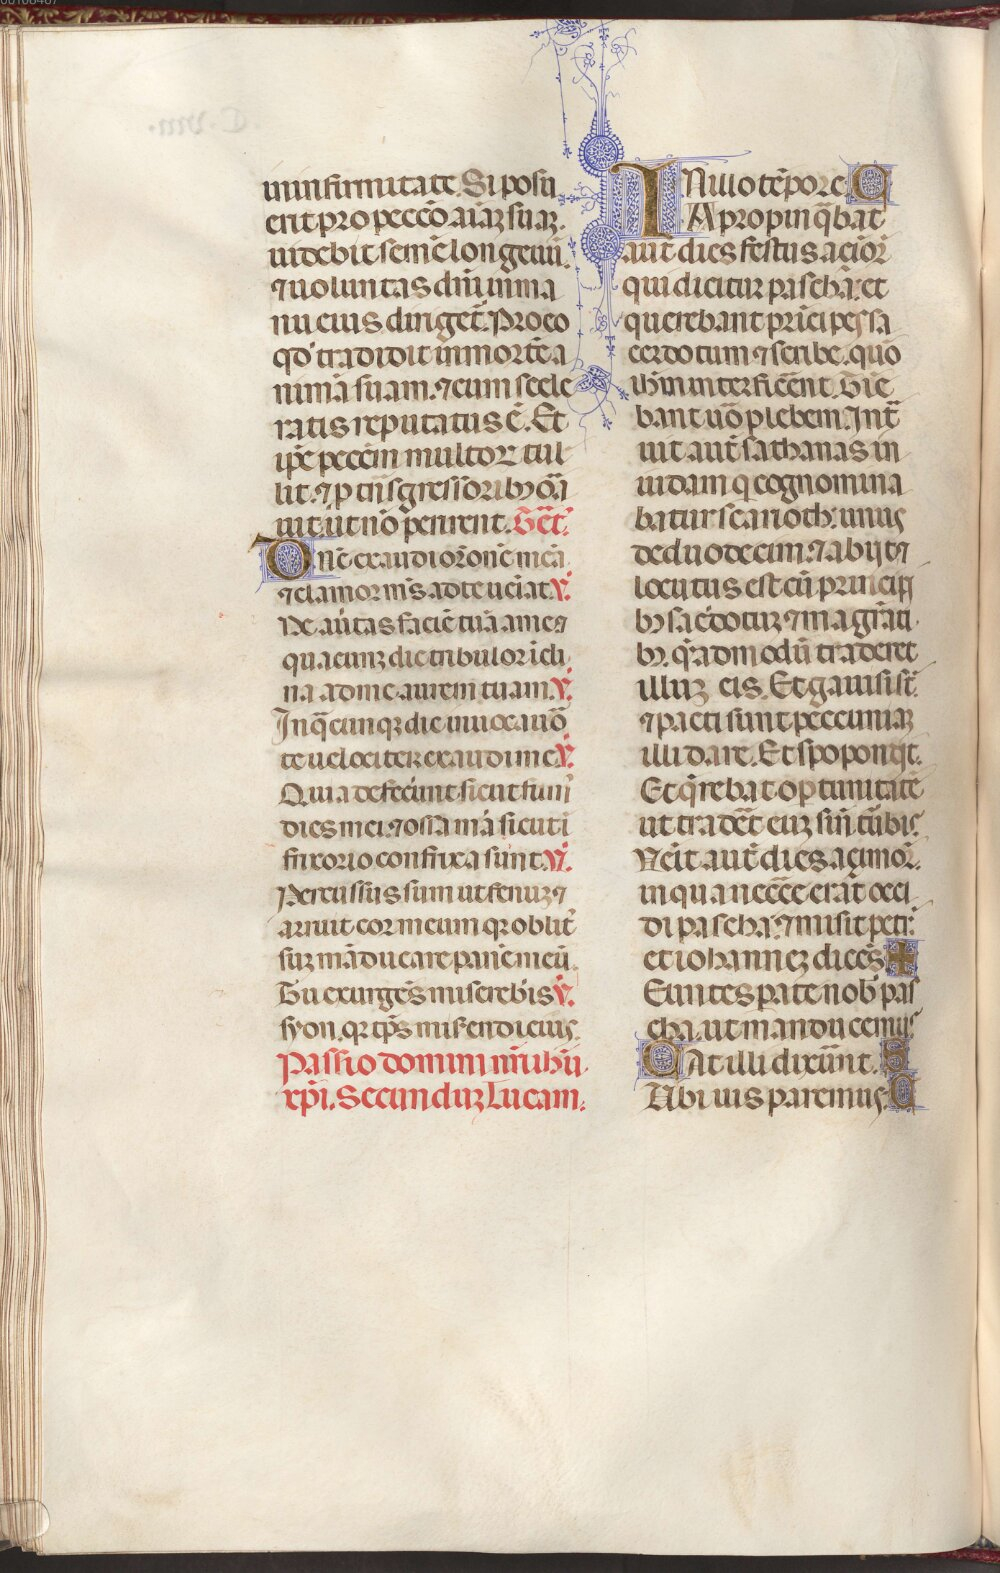 in infirmitate. Si posu
erit pro pecc̄o aīaȝ suaȝ.
uidebit semē longeuū.
⁊ uoluntas dn̄i in ma
nu eius dirigēt̄. Pro eo
qđ tradidit in mortē a
nimā suam. ⁊ cum scele
ratis reputatus ē. Et
ip̄e pecc̄m multoꝝ tul
lit. ⁊ p tn̄sgressorib9 oā
uit. ut nō perirent. Tc̄t.
Dn̄e exaudi or̄onē meā
⁊ clamor m̄s ad te ueīat. ꝟ.
Ne aūtas faciē tuā a me. ⁊
quacunȝ die tribulor icli
na ad me aurem tuam. ꝟ.
In q̄cunqȝ die inuocauō
te uelociter exaudi me. ꝟ.
Quia defecūnt sicut fum9
dies mei. ⁊ ossa mā sicut i
frixorio confrixa sunt. ꝟ.
Percussus sum ut fenuȝ ⁊
aruit cor meum qꝛ oblit9
suȝ māducare panē meū.
Tu exurgēs misereb̄is ꝟ.
syon. qꝛ tp̄s miserēdi eius.
Passio domini nr̄i ih̄u
xp̄i. Secunduȝ Lucam.
IN illo tēpore. C
Apropinq̄bat
aut̄ dies festus açioꝝ
qui dicitur pascha. et
querebant prīcipes sa
cerdotum ⁊ scribe. quō
ih̄m interficēent. Tīe
bant uō plebem. Int̄
uit aut̄ sathanas in
iudam q cognomina
batur scarioth. unus
de duodecim. ⁊ abijt ⁊
locutus est cū principi
b9 sac̄dotuȝ ⁊ magr̄ati
b9. q̄admodū traderet
illuȝ eis. Et gauisi st̄.
⁊ pacti sunt peccuniaȝ
illi dare. Et spopondit.
Et q̄rebat opꝑtunitatē
ut tradēt euȝ sin̄ tūbis.
Uēit aut̄ dies açimoꝝ.
in qua necc̄e erāt occi
di pascha. ⁊ misit petꝝ.
et iohanneȝ dicēs. +
Euntes parate nob̄ pas
cha. ut manducemus.
C At illi dixūnt. S
Ubi uis paremus. C